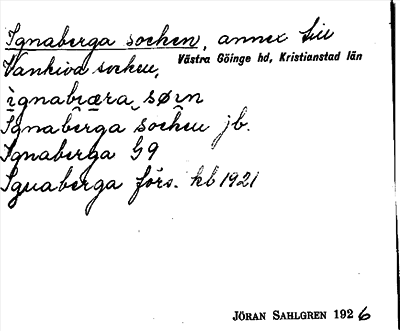 Ignaberga socken, annex till
Västra Göinge hd, Kristianstad län
Vankiva socken,
ìgnabræra, sørn
Ignaberga socken jb.
Ignaberga G9
Ignaberga förs. kb 1921
JÖRAN SAHLGREN 1926